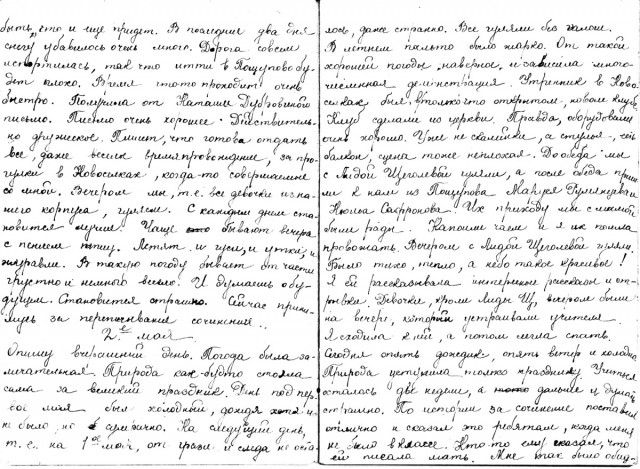 быть, что и еще придет. В последние два дня
снегу убавилось очень много. Дорога совсем
испортилась, так что итти в Пощупово бу-
дет плохо. Время что-то проходит очень
быстро. Получила от Наташи Дубровиной
письмо. Письмо очень хорошее. Действитель-
но дружеское. Пишет, что готова отдать
все, даже весь времяпровождение, за про-
гулки в Новоселках, когда-то совершаемые
со мной. Вечером мы, т.е. все девочки из на-
шего корпуса, гуляем. С каждым днем ста-
новится лучше. Чаще бывают вечера
с пением птиц. Летят и гуси, и утки, и
журавли. В такую погоду бывает отчасти
грустно и немного весело. И думаешь о бу-
дущем. Становится страшно. Сейчас прини-
мусь за переписывание сочинений.
2 мая
Опишу вчерашний день. Погода была за-
мечательная. Природа как-будто стояла
сама за великий праздник. День под пер-
вое мая был холодный, дождя хотя и
не было, но сумрачно. На следующий день,
т.е. на 1ое мая, от грязи и следа не оста-
лось, даже странно. Все гуляли без галош.
В летнем пальто было жарко. От такой
хорошей погоды, наверное, и зависила много-
численная демонстрация. Утренник в Ново-
селках был в только что открытом, новом клубе.
Клуб сделали из церкви. Правда, оборудовали
очень хорошо. Уже не скамейки, а стулья, есть
балкон, сцена тоже неплохая. До обеда мы
с Лидой Щеголевой гуляли, а после обеда приш-
ли к нам из Пощупова Маруся и
Нюша Сафронова. Их приходу мы с мамой
были рады. Напоили чаем и я их пошла
провожать. Вечером с Лидой Щеголевой гуляли.
Было тихо, тепло, а небо такое красивое!
Я ей рассказывала интересные рассказы и от-
рывки. Девочки, кроме Лиды Щ, вечером были
на вечере, который устраивали учителя.
Я сходила к ней, а потом легла спать.
Сегодня опять дождик, опять ветер и холодно.
Природа уступила только празднику. Учиться
осталось две недели, а дальше и думать
страшно. По истории за сочинение поставил
отлично и сказал это ребятам, когда меня
не было в классе. Кто-то ему сказал, что
ей писала мать. Мне так было обид-